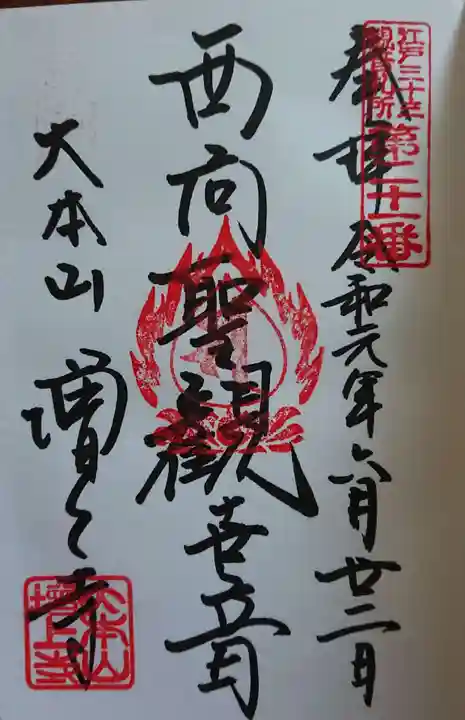 奉拝 令和元年六月廿二日
江戸三十三
観世音札所
第二十一番
西向聖観世音
大本山 増上寺
大本山
増上寺